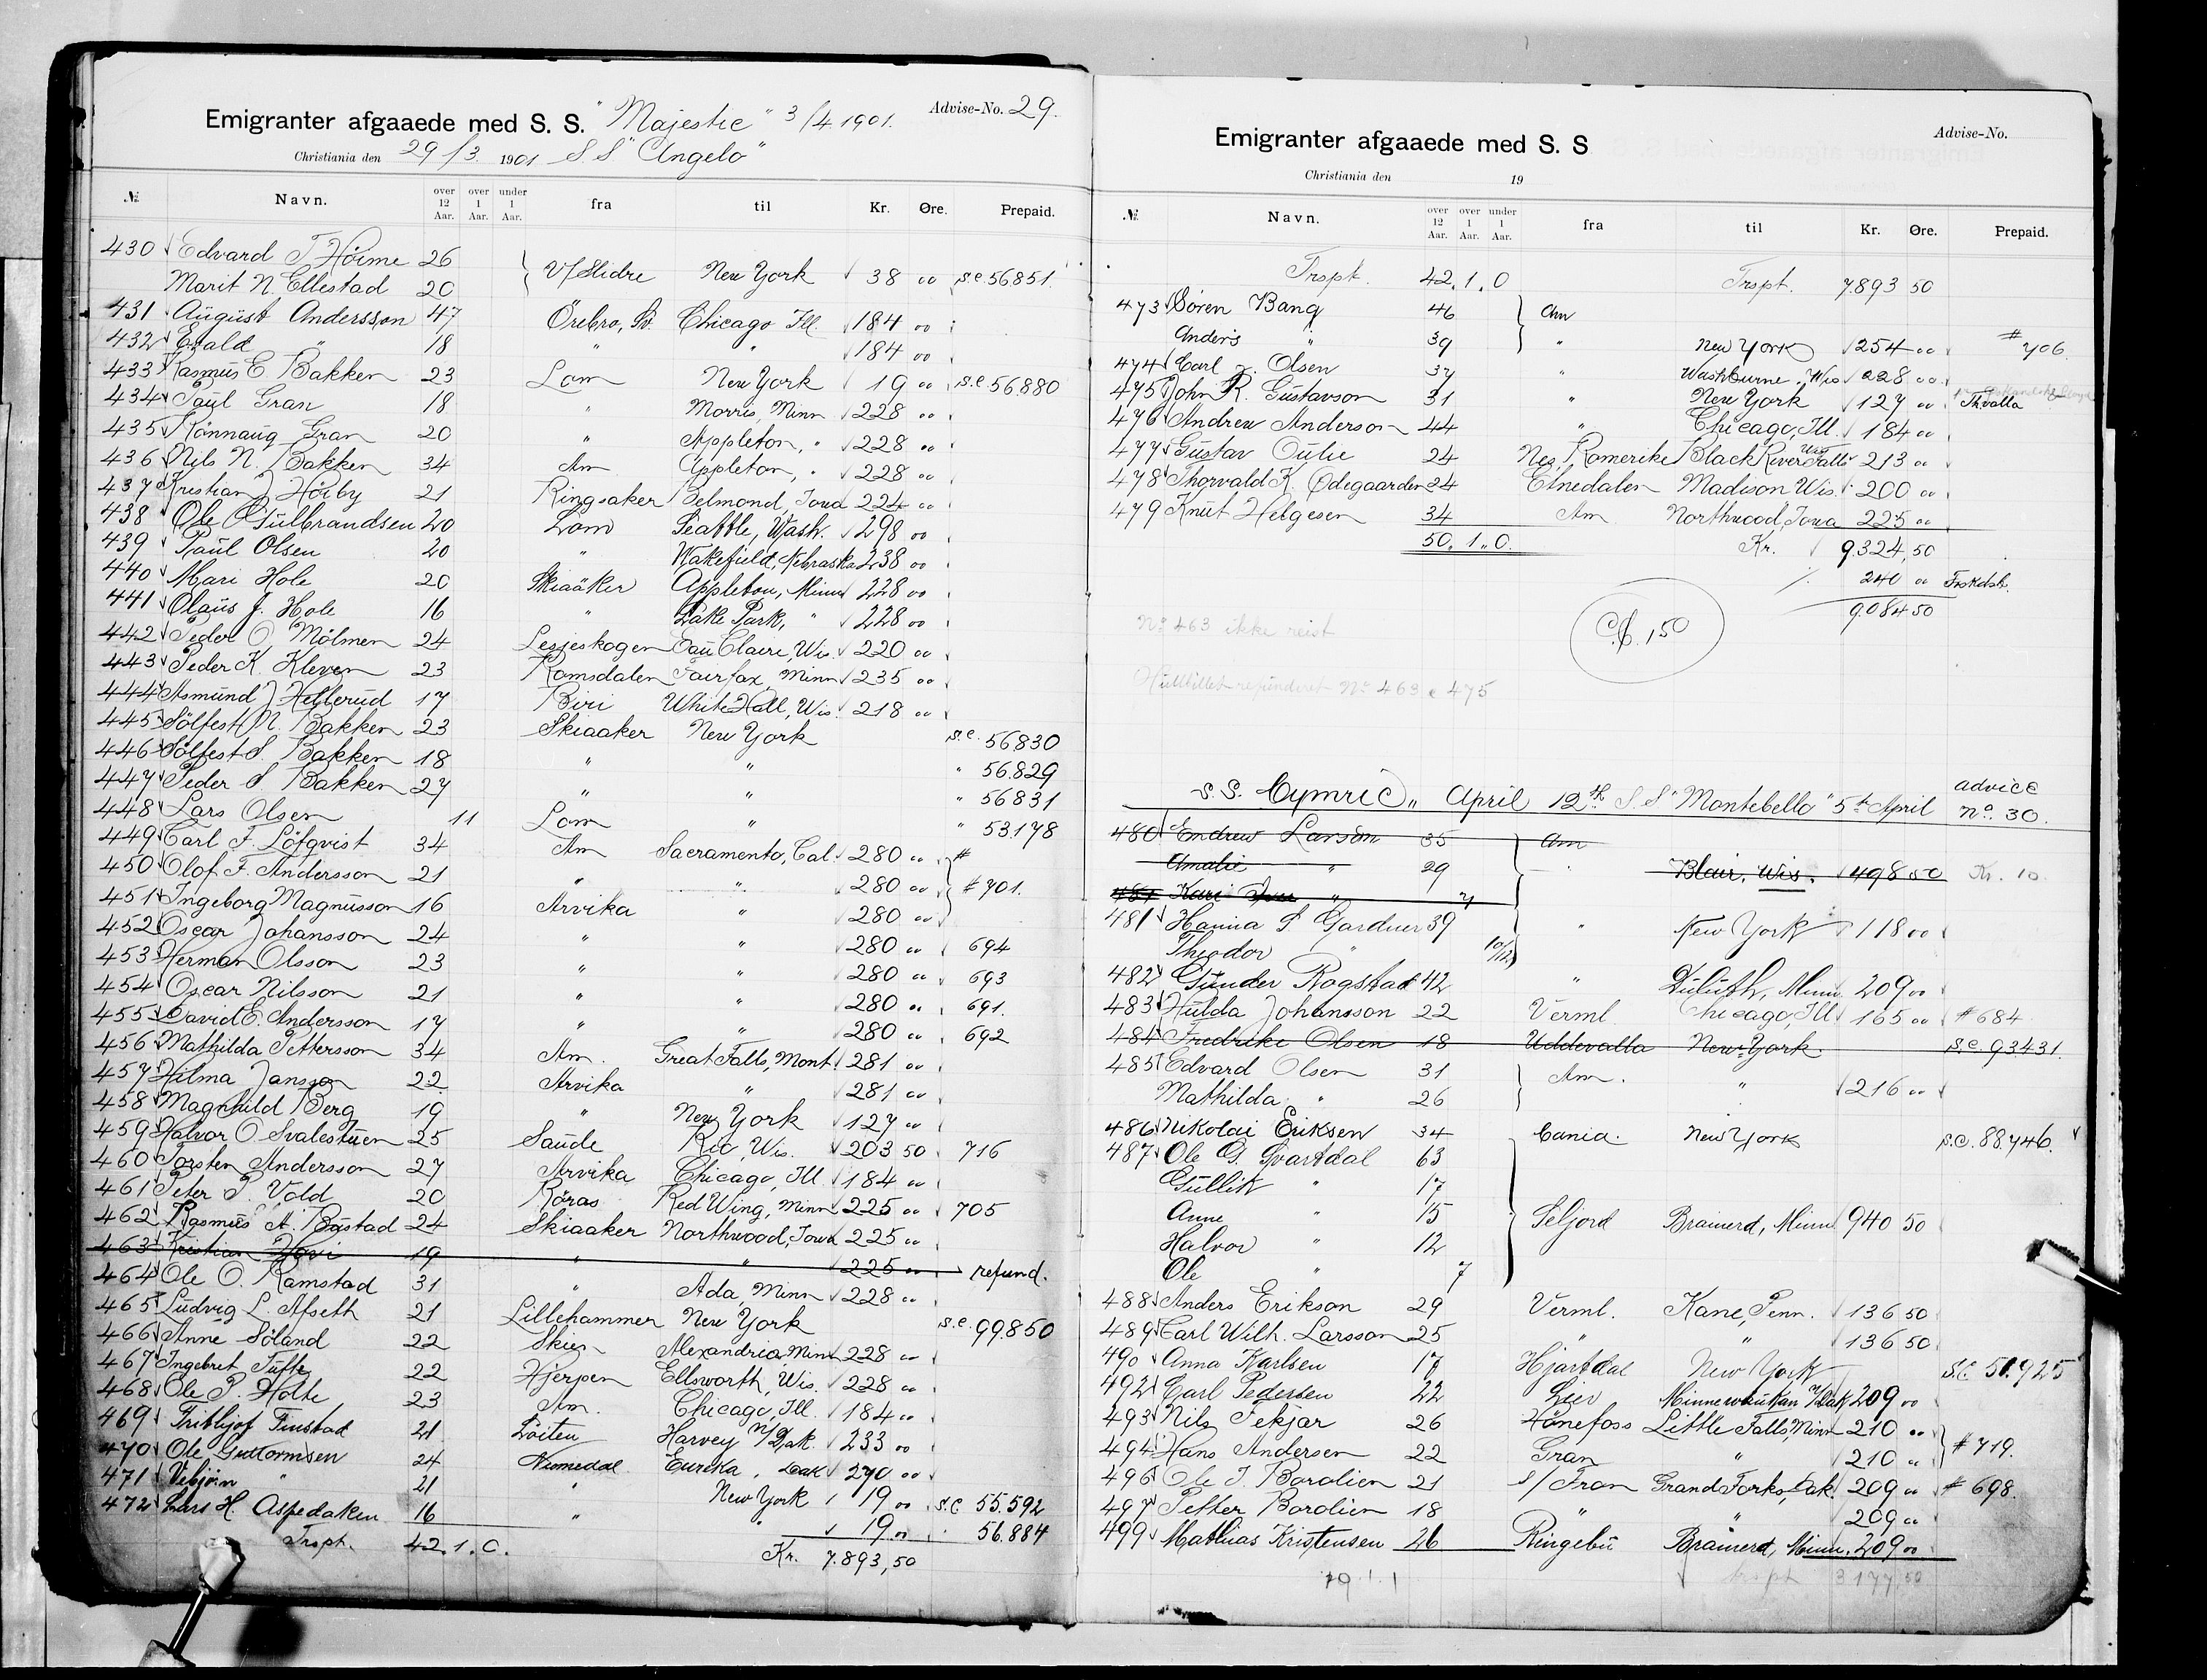 Emigranter afgaaede med S. S. "Majestic" 3/4 1901. Advise-No. 29.
Christiania den 29/3 1901 S S "Angelo"
№ Navn. over 12 Aar. over 1 Aar. under 1 Aar. fra til Kr. Øre. Prepaid.
430 Edvard T. Höime 26
Marit N. Ellestad 20 V/Slidre New York 38 00 s.c. 56851.
431 August Andersson 47 Örebro, Sv. Chicago Ill. 184 00
432 Evald " 18 " " 184 00
433 Rasmus E. Bakken 23 Lom New York 19 00 s.c. 56880
434 Paul Gran 18 " Morris, Minn 228 00
435 Rönnaug Gran 20 " Appleton, " 228 00
436 Nils N. Bakken 34 Am Appleton, " 228 00
437 Kristian J Höiby 21 Ringsaker Belmond, Iowa 224 00
438 Ole O Gulbrandsen 20 Lom Seattle, Wash. 298 00
439 Paul Olsen 20 " Wakefield, Nebraska 238 00
440 Mari Hole 20 Skiaaker Appleton, Minn 228 00
441 Olaus J. Hole 16 " Lake Park, " 228 00
442 Peder O. Mölmen 24 Lesjeskogen Eau Claire, Wis. 220 00
443 Peder K. Kleven 23 Romsdalen Fairfax, Minn 235 00
444 Asmund J Hellerud 17 Biri White Hall, Wis. 218 00
445 Sölfest N. Bakken 23 Skiaaker New York s.c. 56830
446 Sölfest S. Bakken 18 " " " 56.829
447 Peder S. Bakken 27 " " " 56831
448 Lars Olsen 11 Lom " " 53.178
449 Carl F. Löfqvist 34 Am Sacramento, Cal. 280 00 #
450 Olof F. Andersson 21 " " 280 00 # 701.
451 Ingeborg Magnusson 16 Arvika " 280 00
452 Oscar Johansson 24 " " 280 00 694
453 Herman Olsson 23 " " 280 00 693
454 Oscar Nilsson 21 " " 280 00 691.
455 David E. Andersson 17 " " 280 00 692
456 Mathilda Pettersson 34 Am. Great Falls, Mont. 281 00
457 Hilma Jansson 22 Arvika " 281 00
458 Magnhild Berg 19 " New York 127 00
459 Halvor O. Svalestuen 25 Saude Rio, Wis. 203 50 716
460 Torsten Andersson 27 Arvika Chicago, Ill. 184 00
461 Peter P. Vold 20 Röras Red Wing, Minn 225 00 705
462 Rasmus A. Bustad 24 Skiaaker Northwood, Iowa 225 00
463 Kristian 19 " " 225 00 refund.
464 Ole O. Ramstad 31 " Ada, Minn 228 00
465 Ludvig L. Afseth 21 Lillehammer New York s.c. 99850
466 Anne Söland 22 Skien Alexandria, Minn 228 00
467 Ingebret Tufte 22 Hjerpen Ellsworth, Wis. 228 00
468 Ole P. Holte 23 Am. Chicago, Ill. 184 00
469 Frithjof Finstad 21 Löiten Harvey N/Dak. 233 00
470 Ole Guttormsen 24 Numedal Eureka, Dak 270 00
471 Vebjörn " 21 " New York 19 00 s.c. 55.592
472 Lars H. Aspedaken 16 " " 19 00 " 56.884
Trspt. 42. 1. 0. Kr. 7.893,50
Emigranter afgaaede med S. S Advise-No.
Christiania den 19
№ Navn. over 12 Aar. over 1 Aar. under 1 Aar. fra til Kr. Øre. Prepaid.
Trspt. 42. 1. 0 Trspt. 7893 50
473 Sören Bang 46 Am
Anders " 39 " New York 254 00 # 706.
474 Carl J. Olsen 37 " Washburne, Wis 228 00
475 John R. Gustavson 31 " New York 127 00 Thvalla
476 Andrew Anderson 44 " Chicago, Ill. 184 00
477 Gustav Oulie 24 Nes, Romerike Black River Falls Wis 213 00
478 Thorvald K. Ødegaarden 24 Etnedalen Madison Wis. 200 00
479 Knut Helgesen 34 Am Northwood, Iowa 225 00
50. 1. 0. Kr. 9.324,50
%. 240 00
9.084 50
No 463 ikke reist
150
refunderet No 463 & 475
S. S. Cymric" April 12th S.S "Montebello" 5th April advice No. 30.
480 Endrew Larson 35 Am
Amalie " 29 " Blair, Wis. 498 50 Kr. 10
481 Kari " 7
481 Hanna S Gardner 39 " New York 118 00
Theodor " 10/12
482 Gunder Rogstad 42 " Duluth, Minn. 209 00
483 Hulda Johansson 22 Verml. Chicago, Ill 165 00 # 684
484 Fredrike Olsen 18 Uddevalla New York s.c. 93431.
485 Edvard Olsen 31 Am. " 216 00
Mathilda " 26
486 Nikolai Eriksen 34 Cania. New York s.c. 88746.
487 Ole G. Svartdal 63
Gullik " 17
Anne " 15 Seljord Brainerd, Minn 940 50
Halvor " 12
Ole " 7
488 Anders Erikson 29 Verml. Kane, Penn. 136 50
489 Carl Wilh. Larsson 25 " " 136 50
490 Anna Karlsen 17 Hjartdal New York s.c. 51.925
492 Carl Pedersen 22 Lier Minnewaukan N/Dak 209 00
493 Nils Tekjar 26 Hönefoss Little Falls, Minn 210 00
494 Hans Andersen 22 Gran " 210 00 # 719.
496 Ole J. Borolien 21 S/Fron Grand Forks, Dak. 209 00 # 698.
497 Petter Borolien 18 " " 209 00
499 Mathias Kristensen 26 Ringebu Brainerd, Minn. 209 00
19 1 1 trspt 3177,50